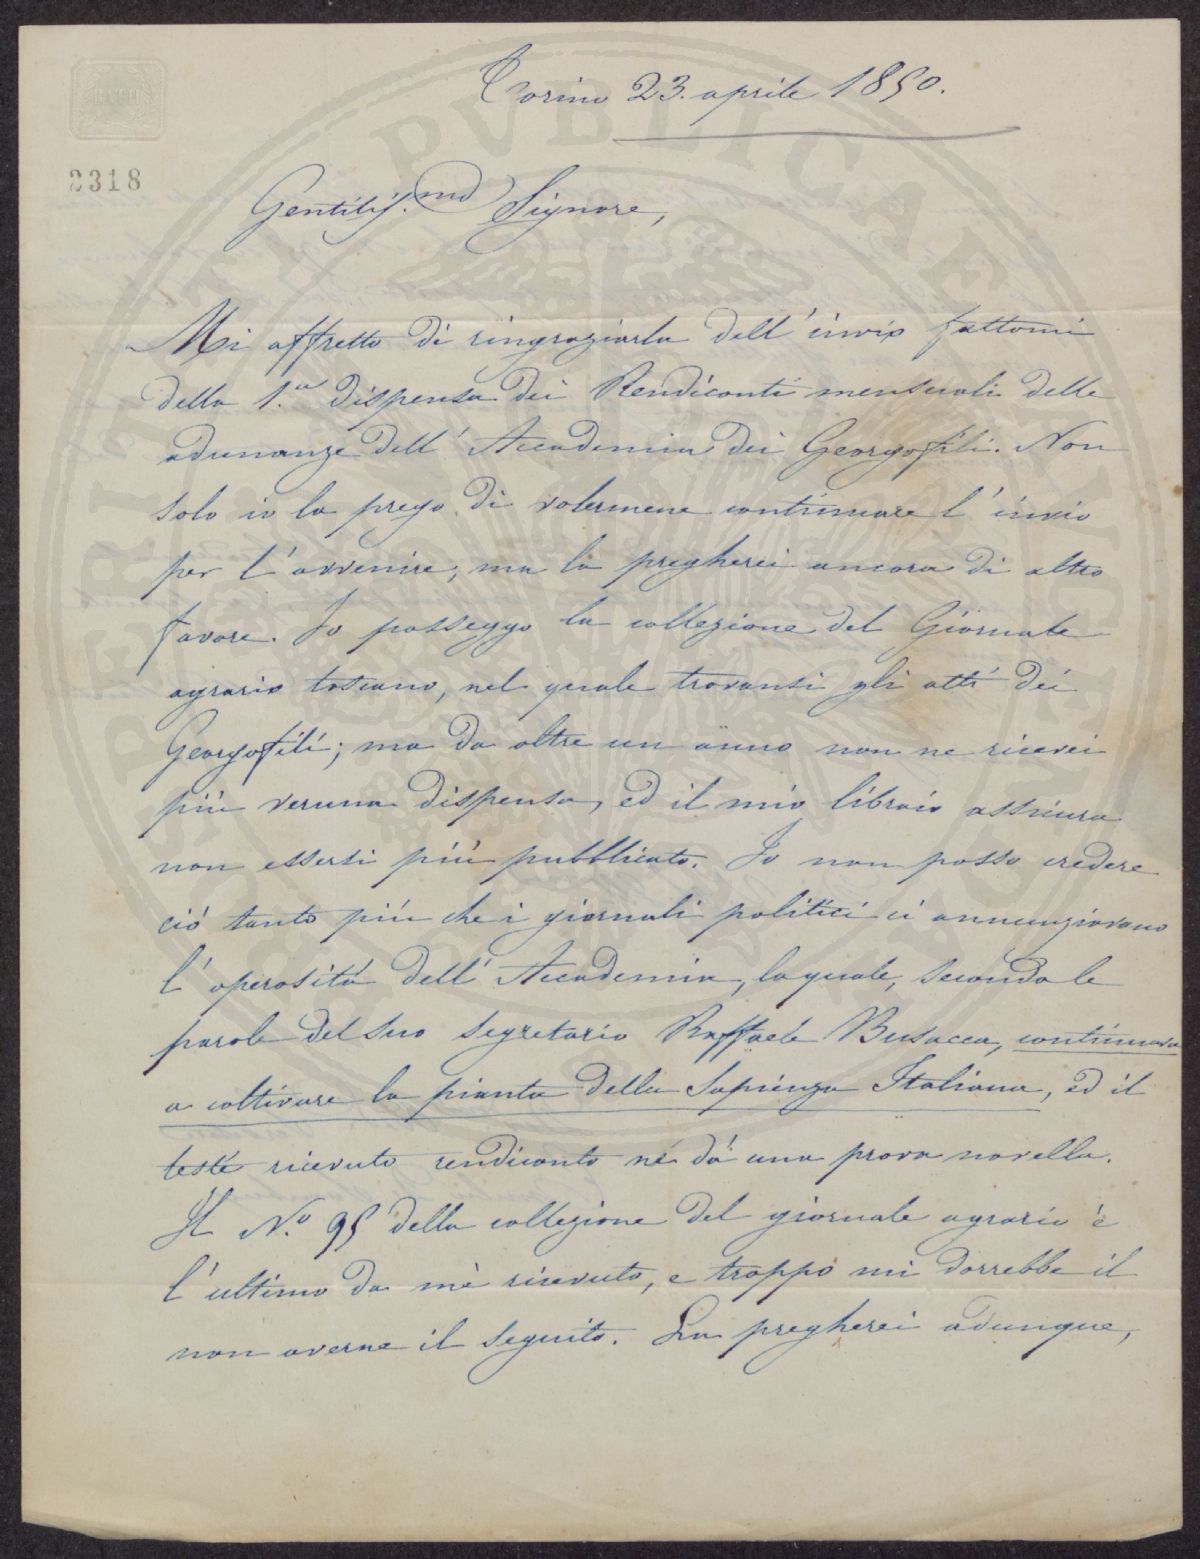 Torino 23. aprile 1850.
BATH
2318
Gentiliss.mo Signore,
Mi affretto di ringraziarla dell' invio fattomi
della 1.a dispensa dei Rendiconti mensuali delle
adunanze dell' Accademia dei Georgofili. Non
solo io la prego di volermene continuare l' invio
per l' avvenire; ma la pregherei ancora di altro
favore. Io posseggo la collezione del Giornale
agrario toscano, nel quale trovansi gli atti dei
Georgofili; ma da oltre un anno non ne ricevei
più veruna dispensa, ed il mio libraio assicura
non essersi più pubblicato. Io non posso credere
ciò tanto più che i giornali politici ci annunziavano
l' operosità dell' Accademia, la quale, secondo le
parole del suo segretario Raffaele Busacca, continuava
a coltivare la pianta della Sapienza Italiana, ed il
testé ricevuto rendiconto né dà una prova novella.
Il N.o 95 della collezione del giornale agrario è
l' ultimo da mè ricevuto, e troppo mi dorrebbe il
non averne il seguito. La pregherei adunque,